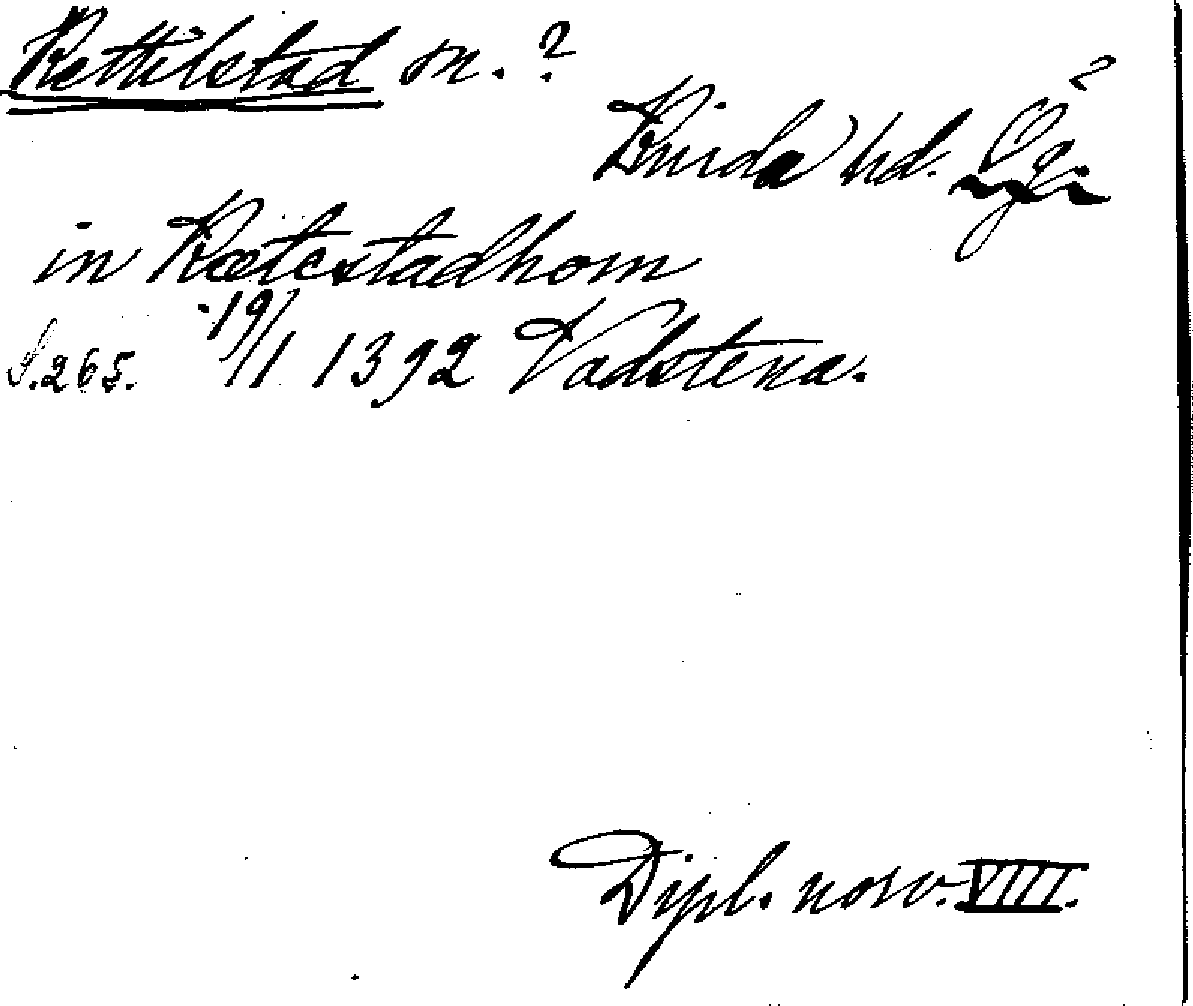 Kettilstad sn. ?
Kinda hd. Ög. ?
in Kætestadhom
S. 265. 19/1 1392 Vadstena.
Dipl. norv. VIII.